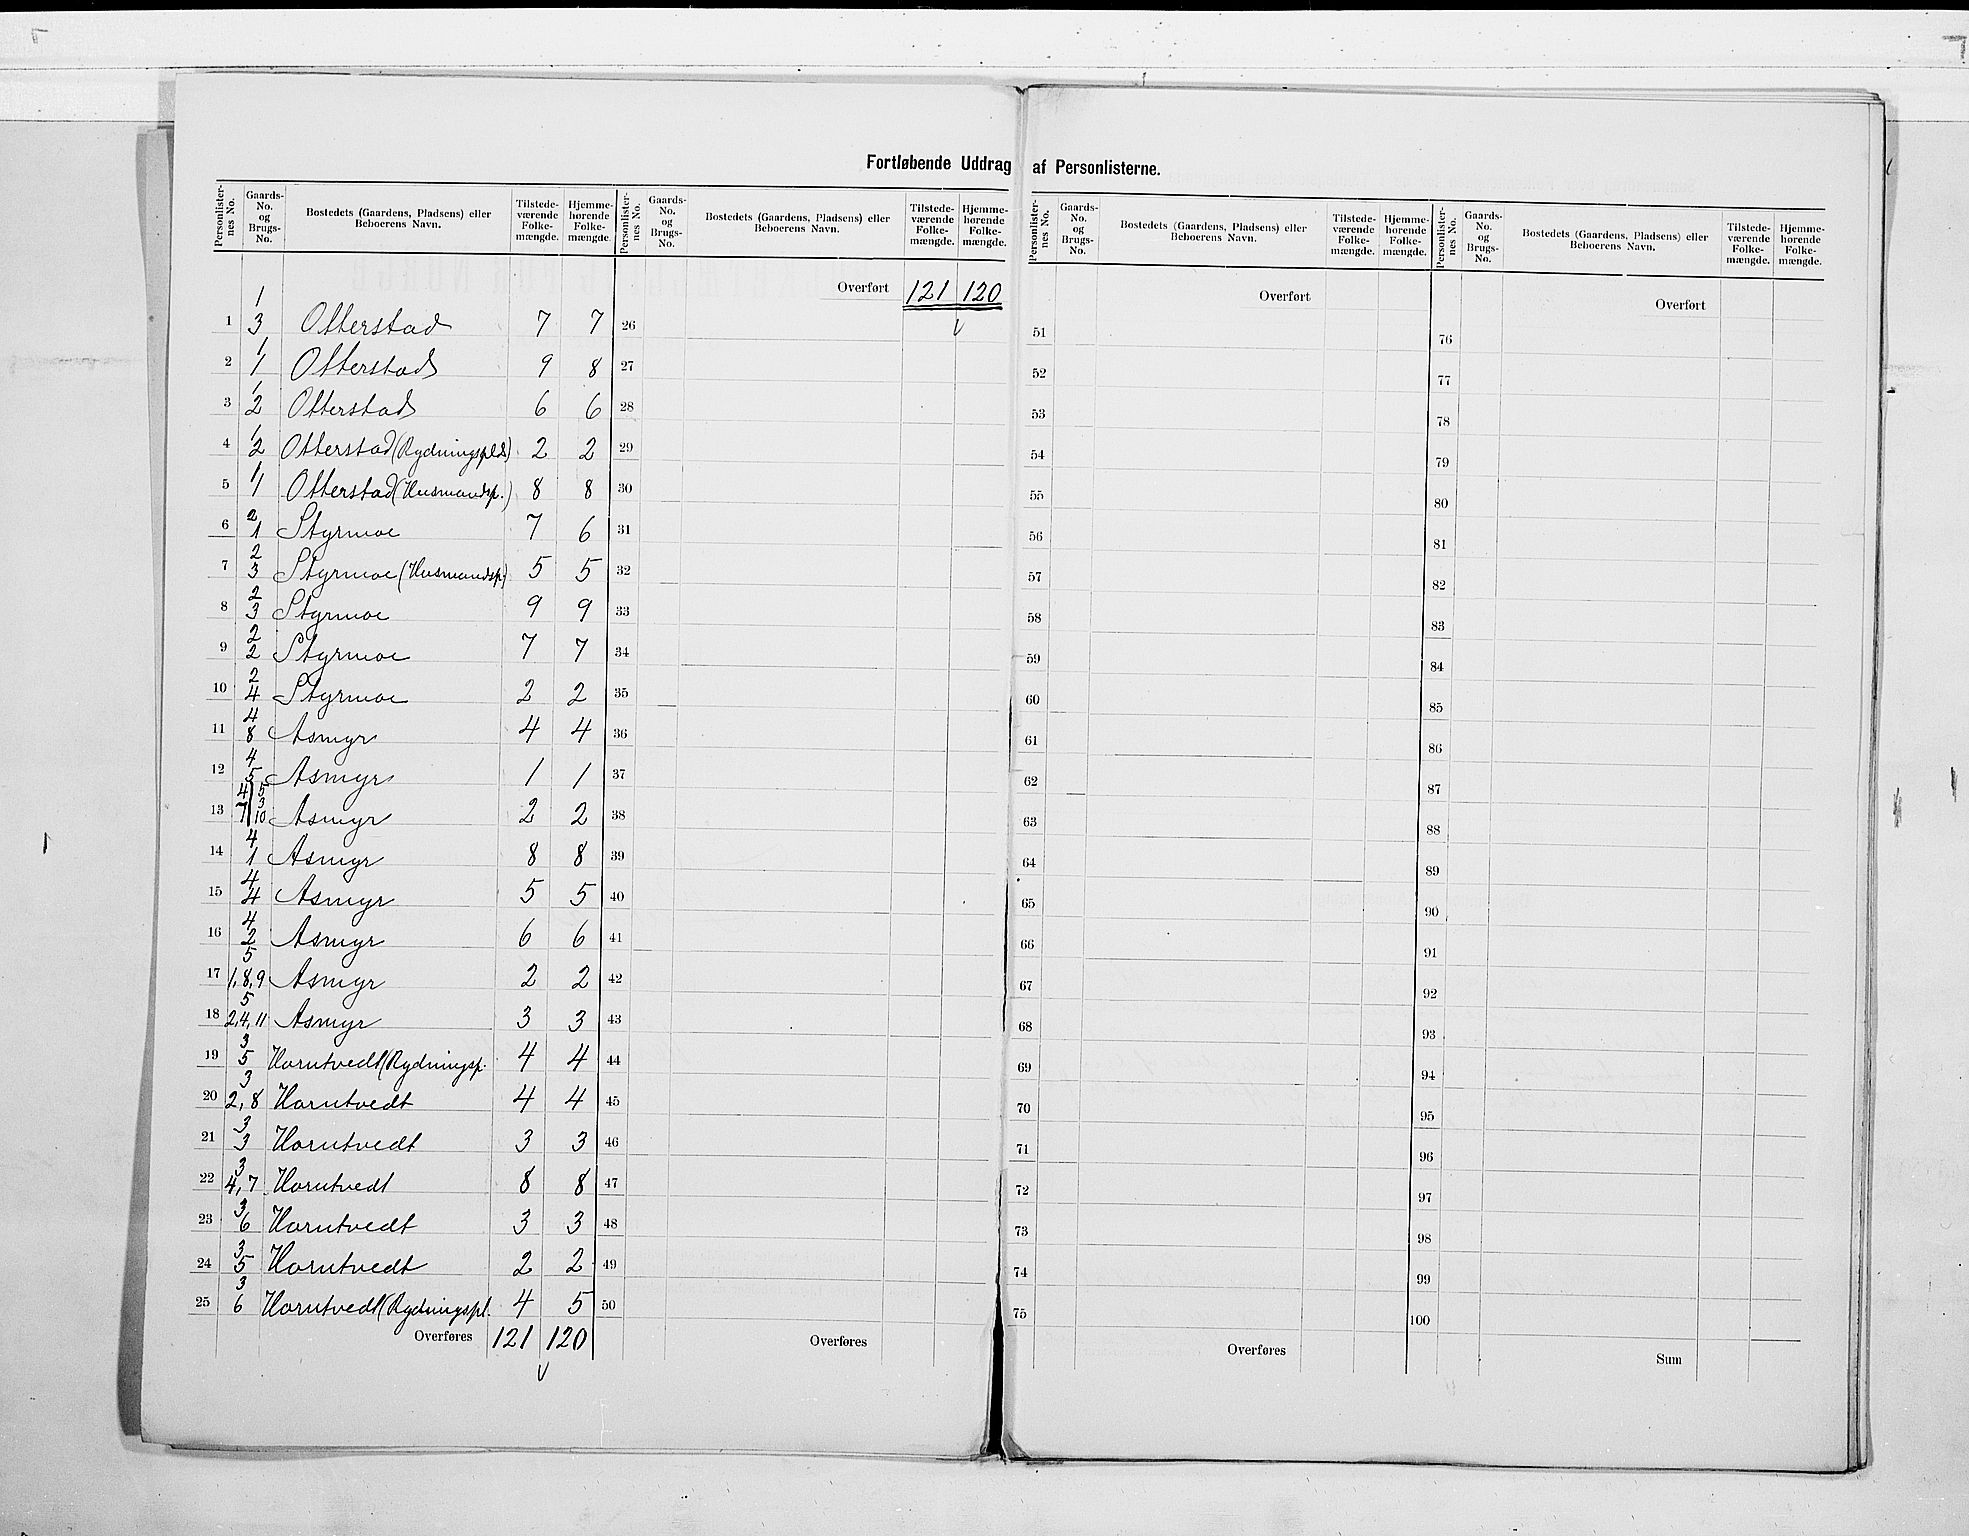 Fortløbende Uddrag af Personlisterne.
Personlister- nes No. Gaards- No. og Brugs- No. Bostedets (Gaardens, Pladsens) eller Beboerens Navn. Tilstede- værende Folke- mængde. Hjemme- hørende Folke- mængde.
1 1 3 Otterstad 7 7
2 1 1 Otterstad 9 8
3 1 2 Otterstad 6 6
4 1 2 Otterstad (Rydningspld) 2 2
5 1 1 Otterstad (Husmandsp.) 8 8
6 2 1 Styrmoe 7 6
7 2 3 Styrmoe (Husmandsp.) 5 5
8 2 3 Styrmoe 9 9
9 2 2 Styrmoe 7 7
10 2 4 Styrmoe 2 2
11 4 8 Asmyr 4 4
12 4 5 Asmyr 1 1
13 4 7 5 3 10 Asmyr 2 2
14 4 1 Asmyr 8 8
15 4 4 Asmyr 5 5
16 4 2 Asmyr 6 6
17 5 1, 8, 9 Asmyr 2 2
18 5 2, 4, 11 Asmyr 3 3
19 3 5 Horntvedt (Rydningsp. 4 4
20 3 2, 8 Horntvedt 4 4
21 3 3 Horntvedt 3 3
22 3 4, 7 Horntvedt 8 8
23 3 6 Horntvedt 3 3
24 3 5 Horntvedt 2 2
25 3 6 Horntvedt (Rydningspl. 4 5
Overføres 121 120
Personlister- nes No. Gaards- No. og Brugs- No. Bostedets (Gaardens, Pladsens) eller Beboerens Navn. Tilstede- værende Folke- mængde. Hjemme- hørende Folke- mængde.
Overført 121 120
26
27
28
29
30
31
32
33
34
35
36
37
38
39
40
41
42
43
44
45
46
47
48
49
50
Overføres
Personlister- nes No. Gaards- No. og Brugs- No. Bostedets (Gaardens, Pladsens) eller Beboerens Navn. Tilstede- værende Folke- mængde. Hjemme- hørende Folke- mængde.
Overført
51
52
53
54
55
56
57
58
59
60
61
62
63
64
65
66
67
68
69
70
71
72
73
74
75
Overføres
Personlister- nes No. Gaards- No. og Brugs- No. Bostedets (Gaardens, Pladsens) eller Beboerens Navn. Tilstede- værende Folke- mængde. Hjemme- hørende Folke- mængde.
Overført
76
77
78
79
80
81
82
83
84
85
86
87
88
89
90
91
92
93
94
95
96
97
98
99
100
Sum